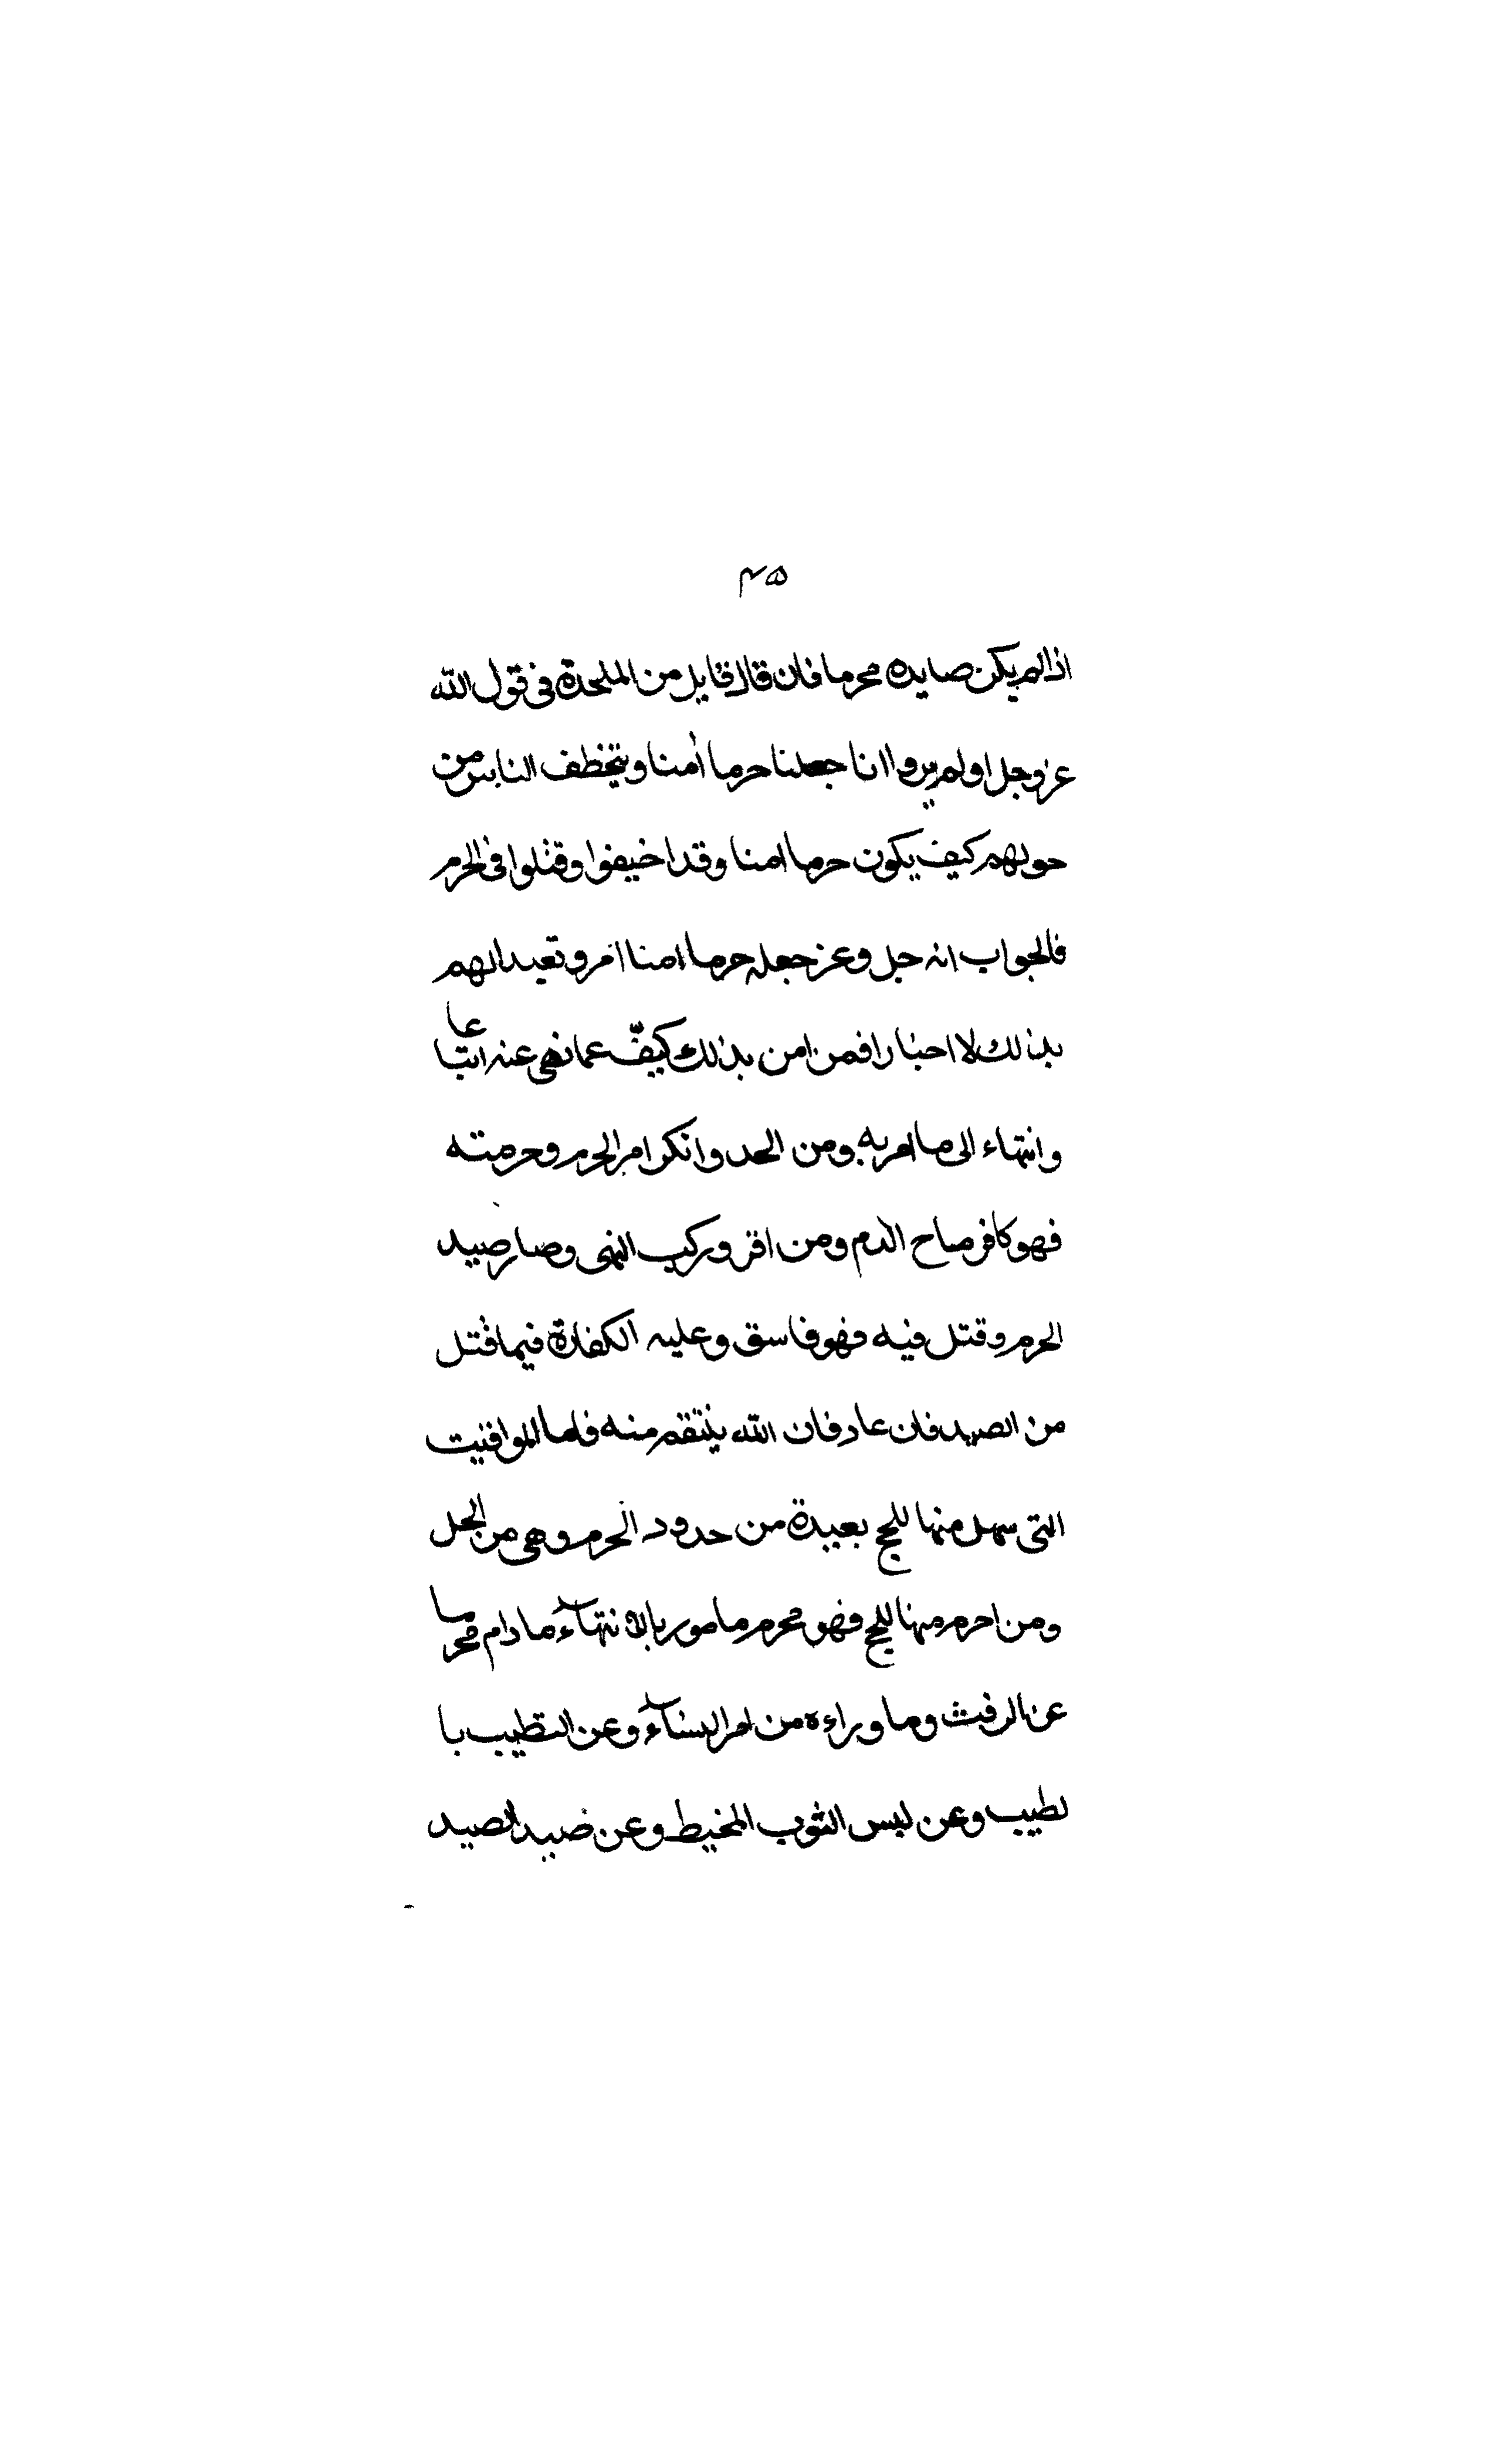 ۴۵
اذا لم يكن صايده محرما فان قال قايل من الملحدة فى قول الله
عز وجل اولم يروا انا جعلنا حرما آمنا ويتخطف الناس من
حولهم كيف يكون حرما امنا وقد اخيفوا وقتلوا فى الحرم
فالجواب انه جل وعز جعله حرما امنا امر وتعبدا لهم
بذلك لا اخبارا فمن امن بذلك كيفّ عما نهى عنه اتباعا
وانتهاء الى ما امر به ومن الحد وانكر امر الحرم وحرمته
فهو كافر مباح الدم ومن اقر وركب النهى وصار صيد
الحرم وقتل فيه فهو فاسق وعليه الكفارة فيما قتل
من الصيد فان عاد فان الله ينتقم منه فاما المواقيت
التى يهل منها للحج بعيدة من حدود الحرم وهى من الحل
ومن احرم منها للحج فهو محرم مامور بالانتهآء ما دام محرما
عن الرفث وما وراءه من امر النسآء وعن التطيب با
لطيب وعن لبس الثوب المخيط وعن صيد الصيد